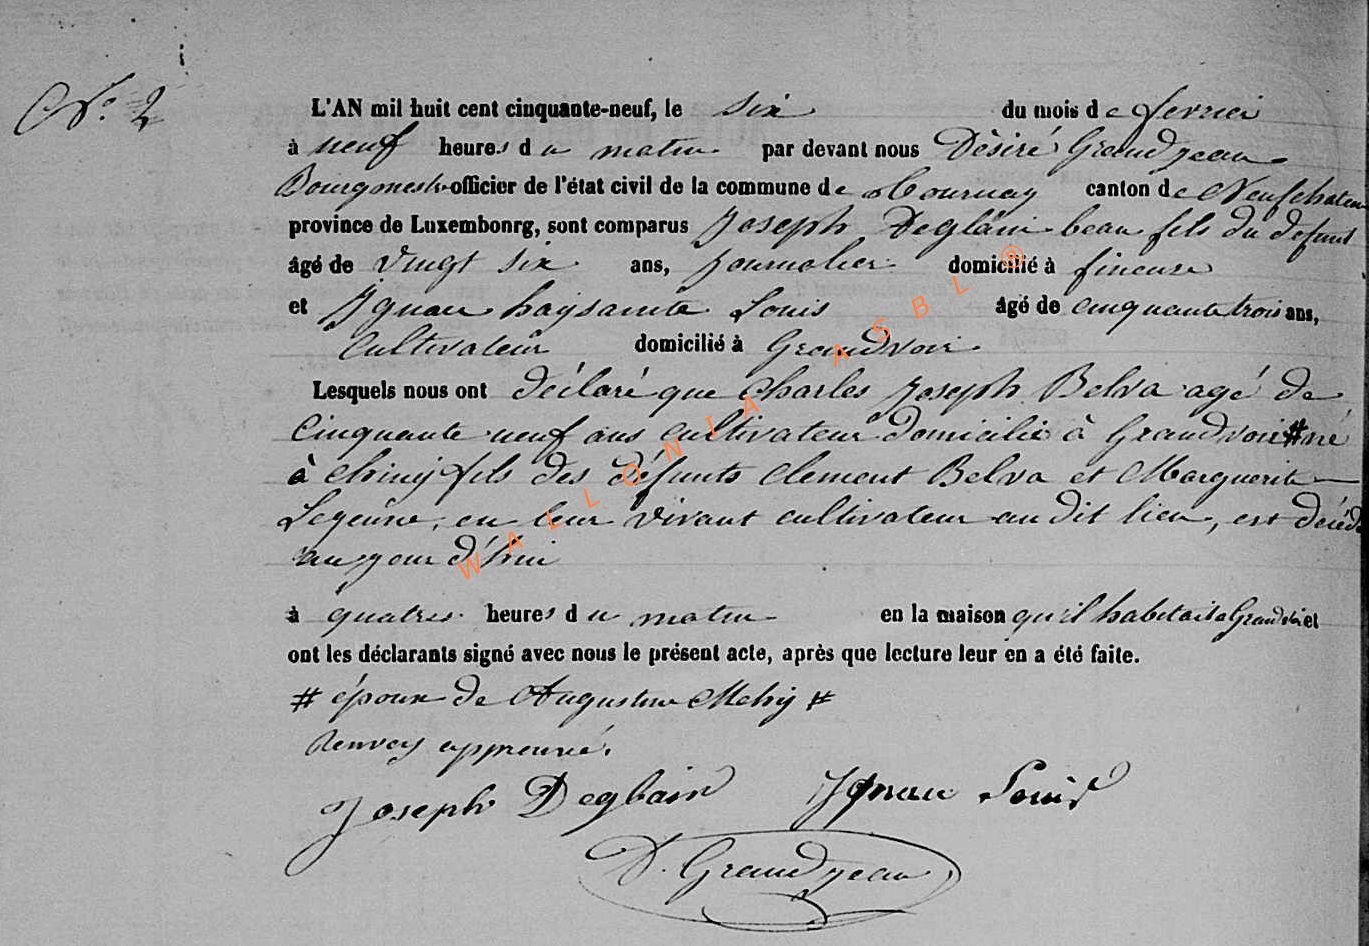 No. 2
L'AN mil huit cent cinquante-neuf, le six du mois de fevrier
à neuf heures du matin par devant nous Désiré Grandjean
Bourgmestre officier de l'état civil de la commune de Tournay canton de Neufchateau
province de Luxembonrg, sont comparus Joseph Deglain beau fils du defunt
âgé de vingt six ans, journalier domicilié à fineuse
et Ignace haysainte Louis âgé de cinquante trois ans,
Cultivateur domicilié à Grandvoir
Lesquels nous ont déclaré que Charles Joseph Belva agé de
Cinquante neuf ans cultivateur domicilié à Grandvoir # né
à chiny fils des défunts Clement Belva et Marguerite
Lejeune, en leur vivant cultivateur au dit lieu, est décédé
aujour d'hui
à quatres heures du matin en la maison qu'il habitait a Grandvoir et
ont les déclarants signé avec nous le présent acte, après que lecture leur en a été faite.
# époux de Augustine #
Renvoy approuvé.
Joseph Deglain Ignace Louis
D. Grandjean
WALLONIA ASBL ®